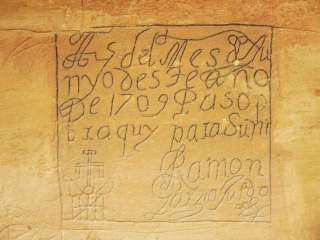 A 5 del Mes de Ju
nyo deste año
De 1709 Paso p
or aquy para Suni
Ramon
Garcia Jurado